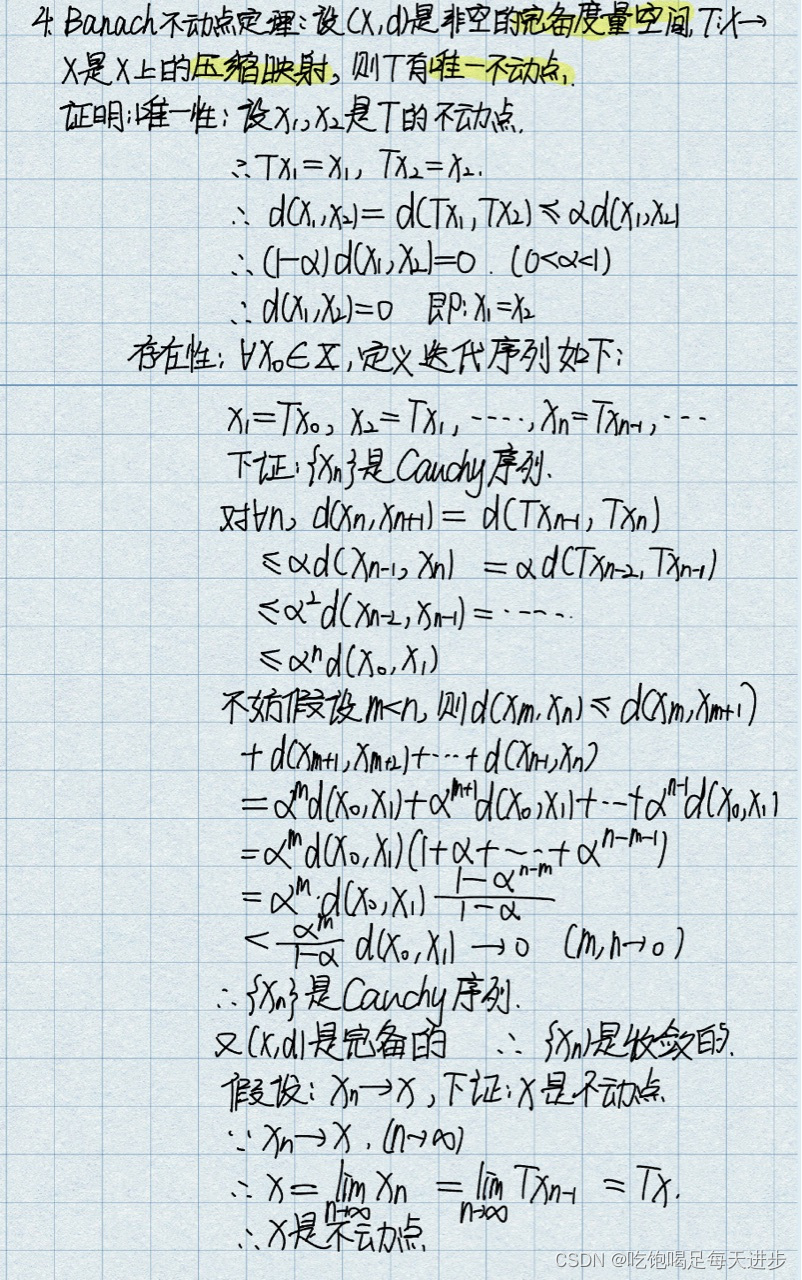 4. Banach不动点定理:设(X,d)是非空的完备度量空间,T:X→
X是X上的压缩映射,则T有唯一不动点.
证明:唯一性:设x₁,x₂是T的不动点.
∴Tx₁=x₁, Tx₂=x₂.
∴ d(x₁,x₂)=d(Tx₁,Tx₂)≤αd(x₁,x₂)
∴(1-α)d(x₁,x₂)=0 . (0<α<1)
∴d(x₁,x₂)=0 即:x₁=x₂
存在性:∀x₀∈X,定义迭代序列如下:
x₁=Tx₀, x₂=Tx₁,····,xₙ=Txₙ₋₁,···
下证:{xₙ}是Cauchy序列.
对∀n, d(xₙ,xₙ₊₁)= d(Txₙ₋₁,Txₙ)
≤αd(xₙ₋₁,xₙ) =αd(Txₙ₋₂,Txₙ₋₁)
≤α²d(xₙ₋₂,xₙ₋₁)=·····
≤αⁿd(x₀,x₁)
不妨假设m<n,则d(xₘ,xₙ)≤d(xₘ,xₘ₊₁)
+d(xₘ₊₁,xₘ₊₂)+···+d(xₙ₋₁,xₙ)
=αᵐd(x₀,x₁)+αᵐ⁺¹d(x₀,x₁)+···+αⁿ⁻¹d(x₀,x₁)
=αᵐd(x₀,x₁)(1+α+····+αⁿ⁻ᵐ⁻¹)
=αᵐ·d(x₀,x₁) (1-αⁿ⁻ᵐ)/(1-α)
< αᵐ/(1-α) d(x₀,x₁)→0 (m,n→0)
∴{xₙ}是Cauchy序列.
又(X,d)是完备的 ∴{xₙ}是收敛的.
假设:xₙ→x,下证:x是不动点.
∵xₙ→x.(n→∞)
∴x=lim xₙ =lim Txₙ₋₁ =Tx.
n→∞ n→∞
∴x是不动点.
CSDN @吃饱喝足每天进步